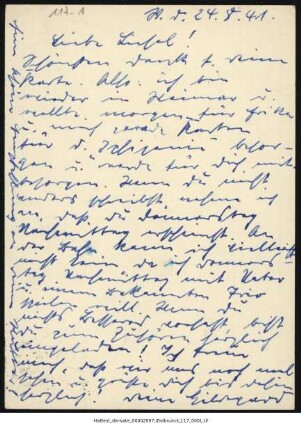 117-1
W. d. 24. 8. 41.
Liebe Liesel!
Schönsten Dank f. deine
Karte. Also ich bin
wieder in Weimar u.
wollte morgen für Erika
u. mich gerade Karten
für d. Iphigenie besor-
gen u. werde für dich mit
besorgen. Wenn du nicht
anders schreibst, nehme ich
an, daß du Donnerstag
Nachmittag erscheinst. An
der Bahn kann ich vielleicht
nicht sein da ich Donners-
tag Nachmittag mit Vater
u. einem Bekannten Trio
spielen will. Wenn du
nichts Besseres vorhast, bist
du zum Zuhören herzlich
eingeladen! Ich freue
mich, daß wir uns noch mal
sehen u. grüße dich bis dahin
herzlich! deine Hildegard
HsBest_derivate_00002697/Delbrueck_117_0001.tif